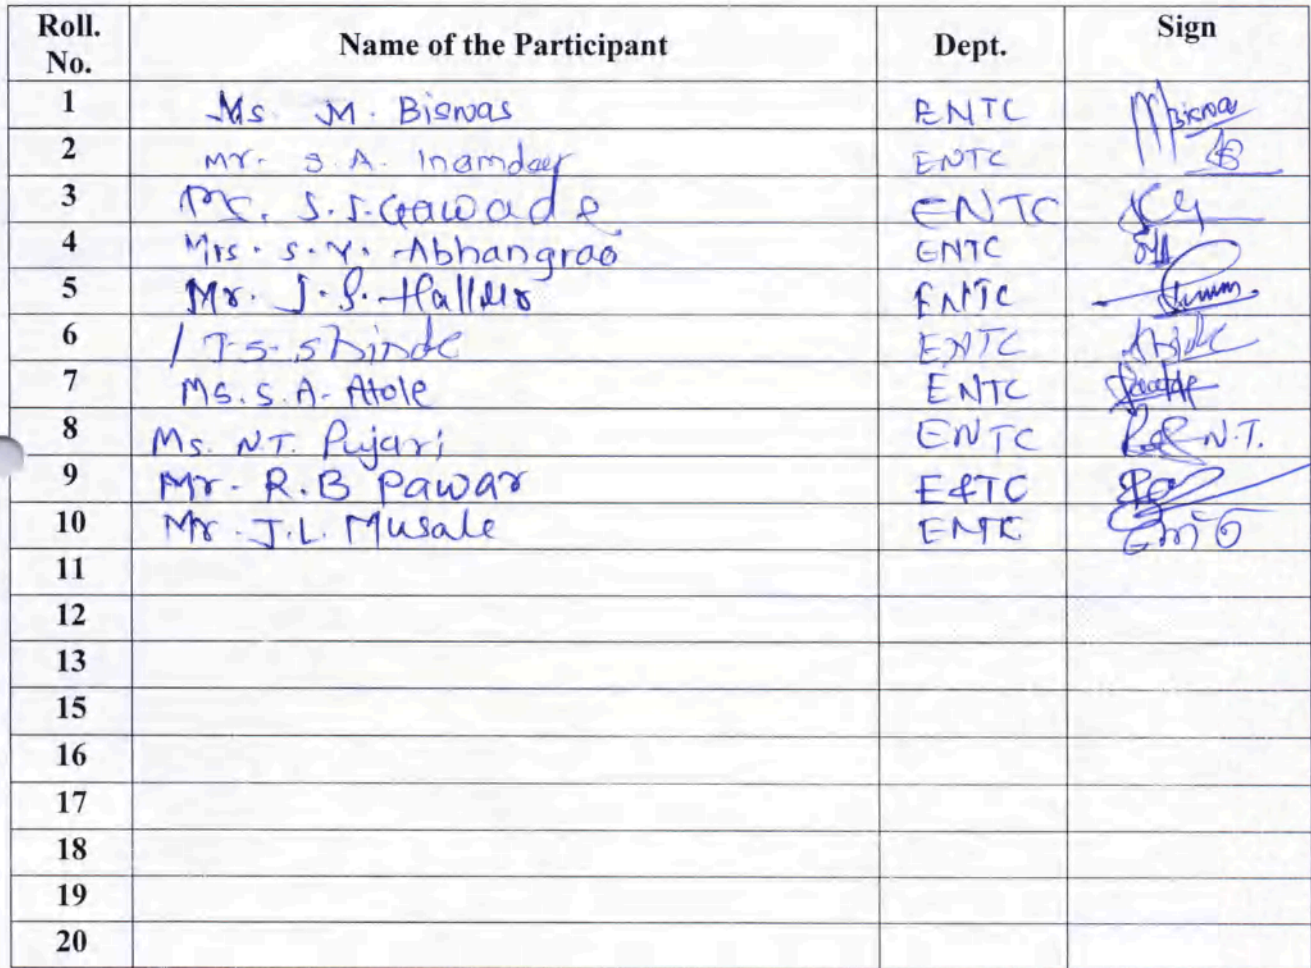 Roll. No. Name of the Participant Dept. Sign
1 Ms. M. Biswas ENTC MBiswas
2 Mr. S.A. Inamdar ENTC
3 S.S. Gawade ENTC
4 Mrs. S.Y. Abhangrao ENTC
5 Mr. J.S. ENTC
6 T.S. Shinde ENTC
7 Ms. S.A. Atole ENTC
8 Ms. N.T. Pujari ENTC N.T.
9 Mr. R.B Pawar E&TC
10 Mr. J.L. Musale ENTC
11
12
13
15
16
17
18
19
20